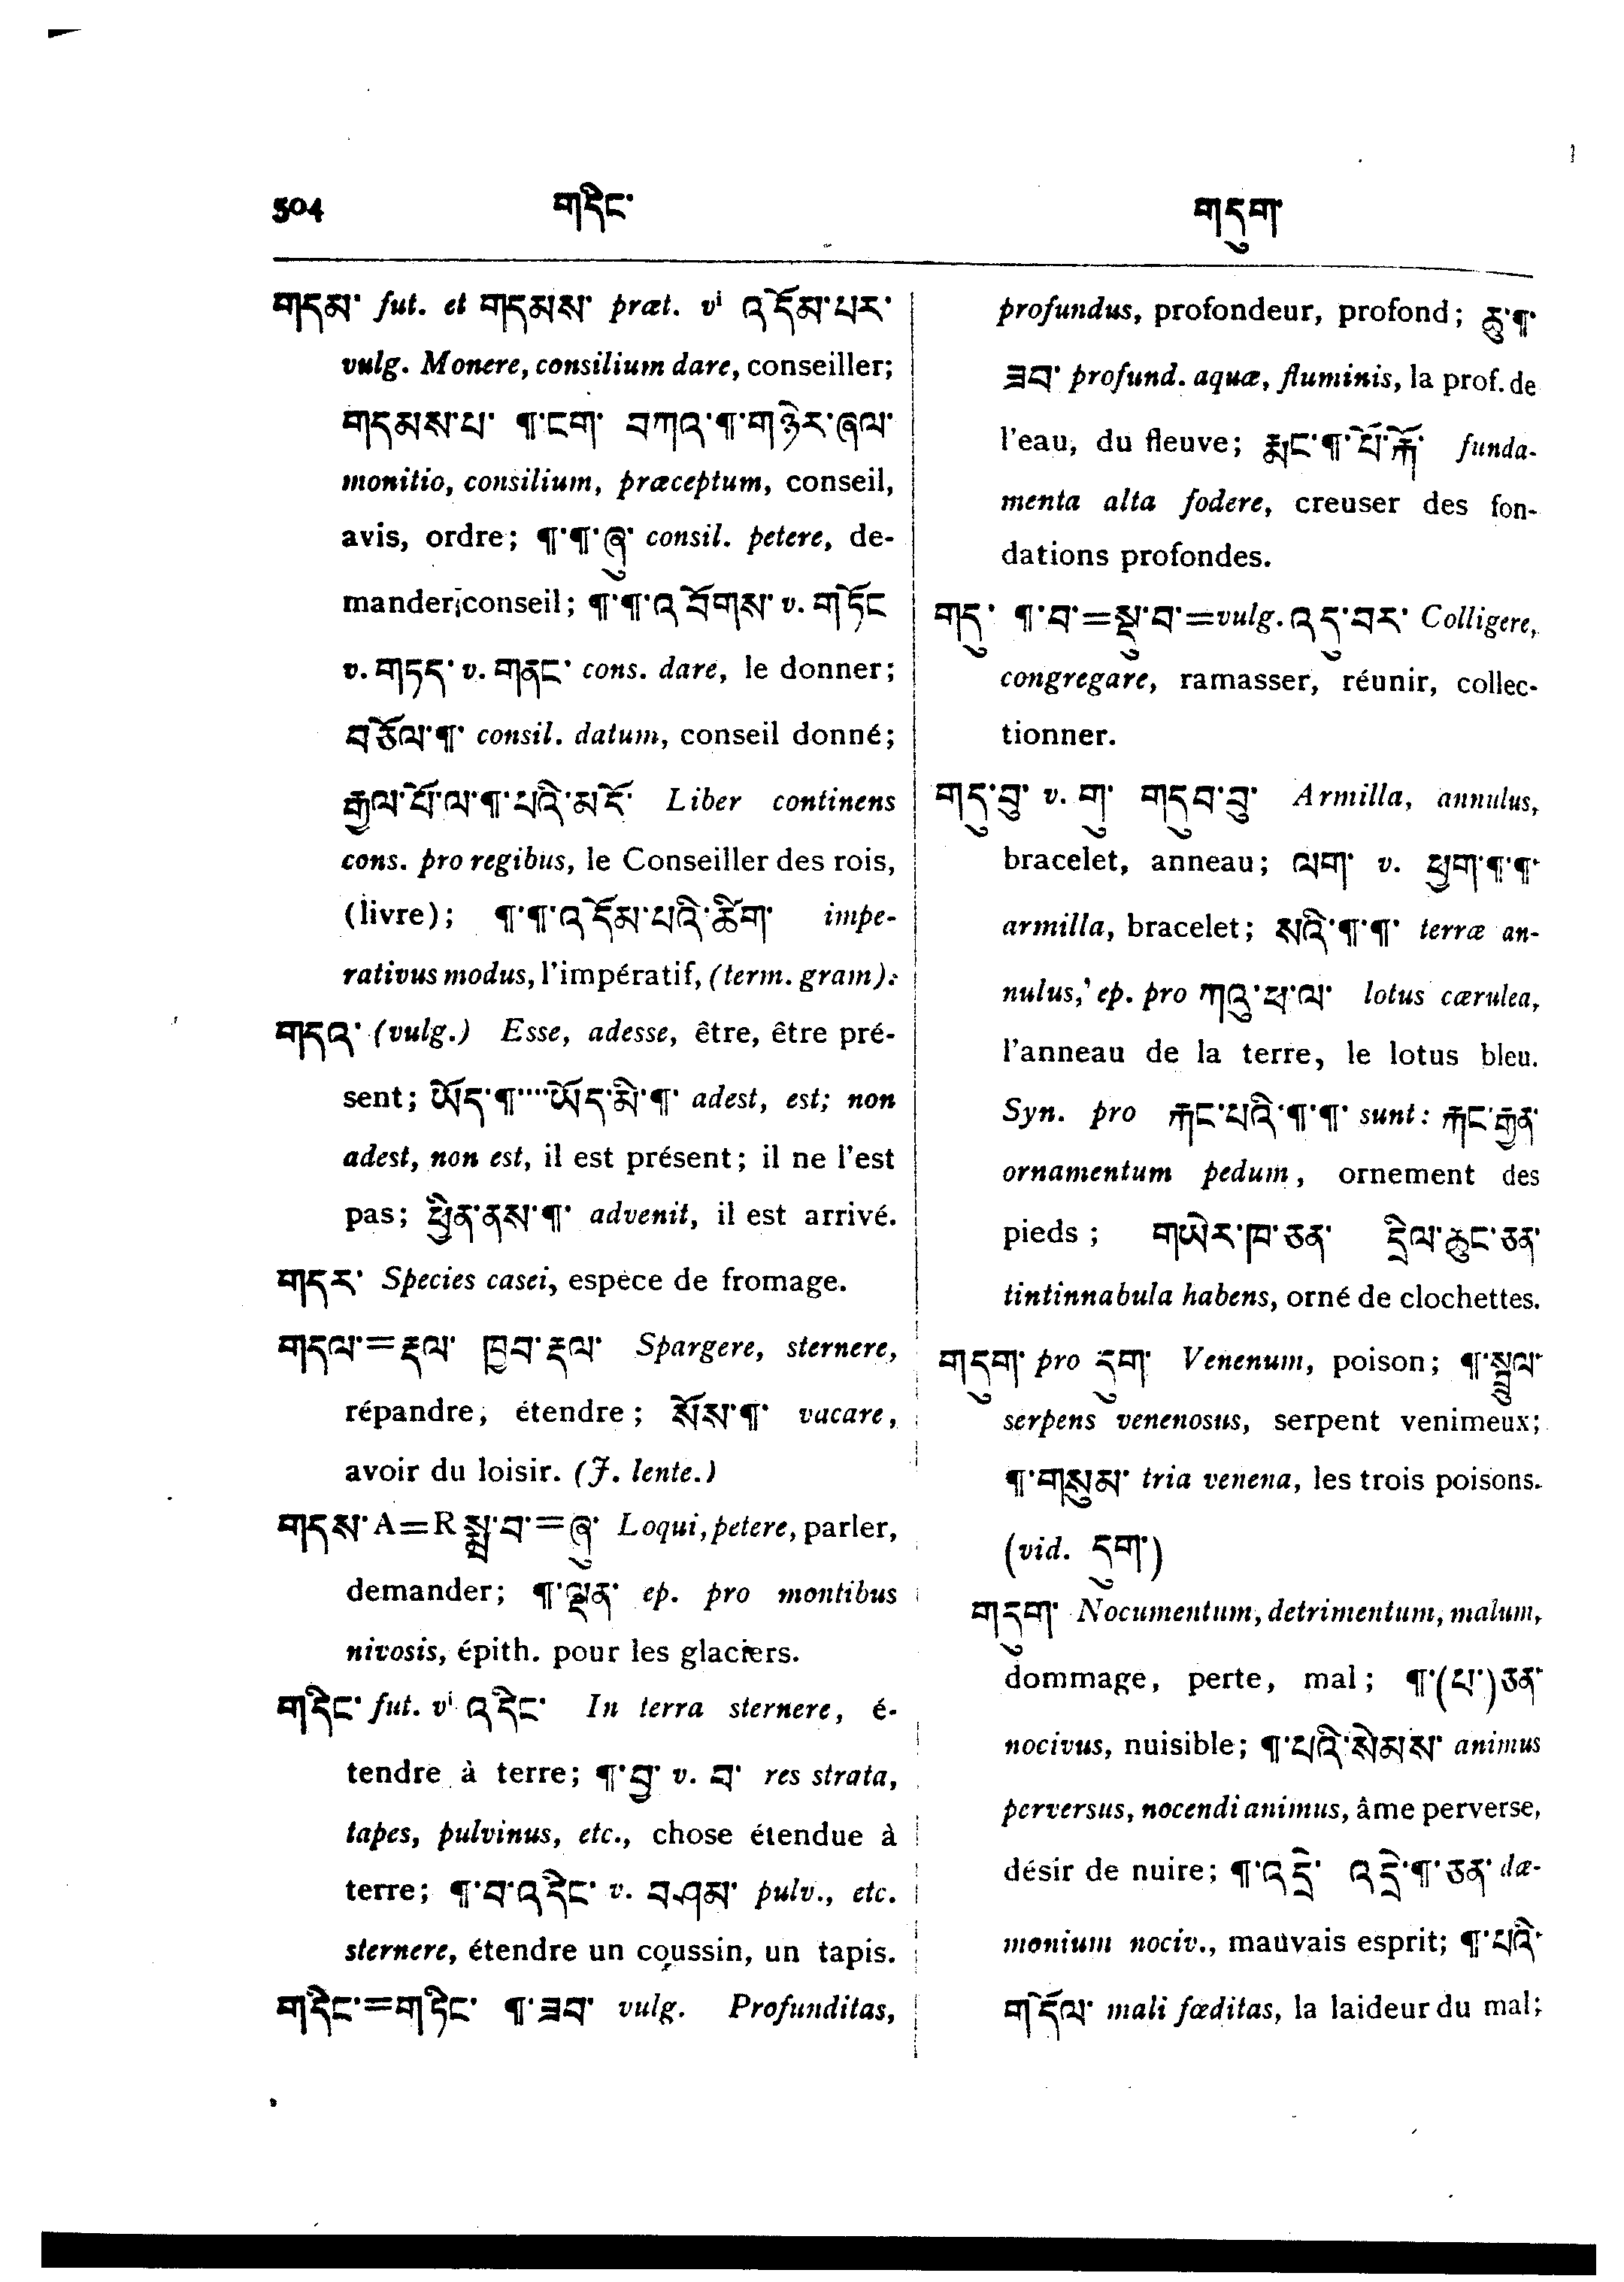 504 གདིང་ གདུག་
གདམ་ fut. et གདམས་ præt. vⁱ འདོམ་པར་
vulg. Monere, consilium dare, conseiller;
གདམས་པ་ ¶་ངག་ བཀའ་¶་གཉེར་ཞལ་
monitio, consilium, præceptum, conseil,
avis, ordre; ¶་¶་ཞུ་ consil. petere, de-
mander conseil; ¶་¶་འབོགས་ v. གཏོང
v. གཏད་ v. གནང་ cons. dare, le donner;
བཅོལ་¶་ consil. datum, conseil donné;
རྒྱལ་པོ་ལ་¶་པའི་མདོ་ Liber continens
cons. pro regibus, le Conseiller des rois,
(livre); ¶་¶་འདོམ་པའི་ཚིག་ impe-
rativus modus, l'impératif, (term. gram):
གདའ་ (vulg.) Esse, adesse, être, être pré-
sent; ཡོད་¶་···ཡོད་མི་¶་ adest, est; non
adest, non est, il est présent; il ne l'est
pas; ཕྱིན་ནས་¶་ advenit, il est arrivé.
གདར་ Species casei, espèce de fromage.
གདལ་=རྡལ་ ཁྱབ་རྡལ་ Spargere, sternere,
répandre, étendre; སོས་¶་ vacare,
avoir du loisir. (J. lente.)
གདས་ A=R སྨྲ་བ་=ཞུ་ Loqui, petere, parler,
demander; ¶་ལྡན་ ep. pro montibus
nivosis, épith. pour les glaciers.
གདིང་ fut. vⁱ འདིང་ In terra sternere, é-
tendre à terre; ¶་བྱ་ v. བ་ res strata,
tapes, pulvinus, etc., chose étendue à
terre; ¶་བ་འདིང་ v. བཤམ་ pulv., etc.
sternere, étendre un coussin, un tapis.
གདིང་=གཏིང་ ¶་ཟབ་ vulg. Profunditas,
profundus, profondeur, profond; ཆུ་¶་
ཟབ་ profund. aquæ, fluminis, la prof. de
l'eau, du fleuve; རྨང་¶་པོ་རྐོ་ funda-
menta alta fodere, creuser des fon-
dations profondes.
གདུ་ ¶་བ་=སྡུ་བ་=vulg. འདུ་བར་ Colligere,
congregare, ramasser, réunir, collec-
tionner.
གདུ་བུ་ v. གུ་ གདུབ་བུ་ Armilla, annulus,
bracelet, anneau; ལག་ v. ཕྱག་¶་¶་
armilla, bracelet; སའི་¶་¶་ terræ an-
nulus, ep. pro ཀའུ་པ་ལ་ lotus cærulea,
l'anneau de la terre, le lotus bleu.
Syn. pro རྐང་པའི་¶་¶་ sunt: རྐང་རྒྱན་
ornamentum pedum, ornement des
pieds; གཡེར་ཁ་ཅན་ དྲིལ་ཆུང་ཅན་
tintinnabula habens, orné de clochettes.
གདུག་ pro དུག་ Venenum, poison; ¶་སྦྲུལ་
serpens venenosus, serpent venimeux;
¶་གསུམ་ tria venena, les trois poisons.
(vid. དུག་)
གདུག་ Nocumentum, detrimentum, malum,
dommage, perte, mal; ¶་(པ་)ཅན་
nocivus, nuisible; ¶་པའི་སེམས་ animus
perversus, nocendi animus, âme perverse,
désir de nuire; ¶་འདྲེ་ འདྲེ་¶་ཅན་ dæ-
monium nociv., mauvais esprit; ¶་པའི་
གདོལ་ mali fœditas, la laideur du mal;